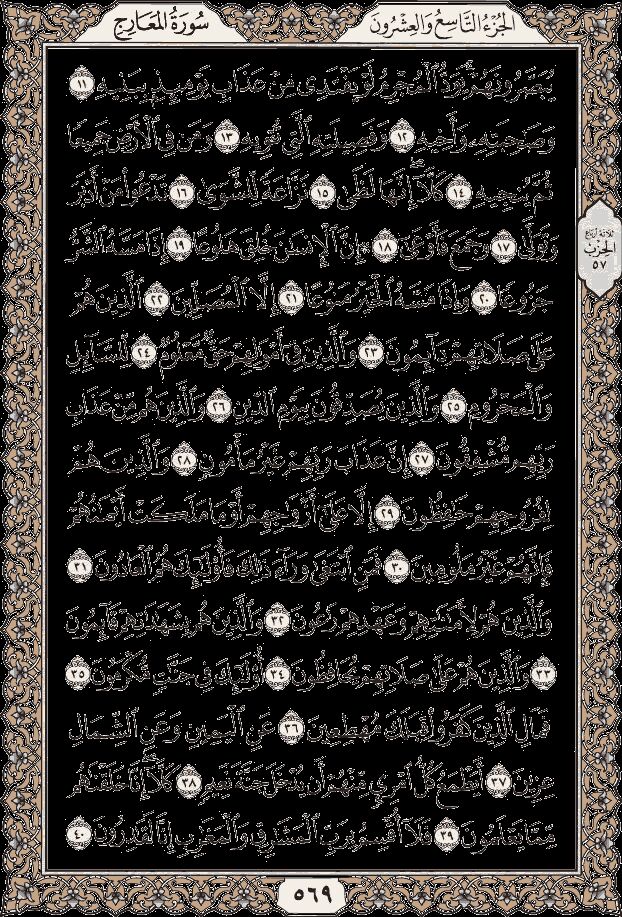 الجُزْءُ التَّاسِعُ وَالعِشْرُونَ
سُورَةُ المَعَارِجِ
يُبَصَّرُونَهُمْ يَوَدُّ ٱلْمُجْرِمُ لَوْ يَفْتَدِى مِنْ عَذَابِ يَوْمِئِذٍۭ بِبَنِيهِ ١١
وَصَٰحِبَتِهِۦ وَأَخِيهِ ١٢ وَفَصِيلَتِهِ ٱلَّتِى تُـْٔوِيهِ ١٣ وَمَن فِى ٱلْأَرْضِ جَمِيعًا
ثُمَّ يُنجِيهِ ١٤ كَلَّآ إِنَّهَا لَظَىٰ ١٥ نَزَّاعَةً لِّلشَّوَىٰ ١٦ تَدْعُوا۟ مَنْ أَدْبَرَ
وَتَوَلَّىٰ ١٧ وَجَمَعَ فَأَوْعَىٰٓ ١٨ إِنَّ ٱلْإِنسَٰنَ خُلِقَ هَلُوعًا ١٩ إِذَا مَسَّهُ ٱلشَّرُّ
جَزُوعًا ٢٠ وَإِذَا مَسَّهُ ٱلْخَيْرُ مَنُوعًا ٢١ إِلَّا ٱلْمُصَلِّينَ ٢٢ ٱلَّذِينَ هُمْ
عَلَىٰ صَلَاتِهِمْ دَآئِمُونَ ٢٣ وَٱلَّذِينَ فِىٓ أَمْوَٰلِهِمْ حَقٌّ مَّعْلُومٌ ٢٤ لِّلسَّآئِلِ
وَٱلْمَحْرُومِ ٢٥ وَٱلَّذِينَ يُصَدِّقُونَ بِيَوْمِ ٱلدِّينِ ٢٦ وَٱلَّذِينَ هُم مِّنْ عَذَابِ
رَبِّهِم مُّشْفِقُونَ ٢٧ إِنَّ عَذَابَ رَبِّهِمْ غَيْرُ مَأْمُونٍ ٢٨ وَٱلَّذِينَ هُمْ
لِفُرُوجِهِمْ حَٰفِظُونَ ٢٩ إِلَّا عَلَىٰٓ أَزْوَٰجِهِمْ أَوْ مَا مَلَكَتْ أَيْمَٰنُهُمْ
فَإِنَّهُمْ غَيْرُ مَلُومِينَ ٣٠ فَمَنِ ٱبْتَغَىٰ وَرَآءَ ذَٰلِكَ فَأُو۟لَٰٓئِكَ هُمُ ٱلْعَادُونَ ٣١
وَٱلَّذِينَ هُمْ لِأَمَٰنَٰتِهِمْ وَعَهْدِهِمْ رَٰعُونَ ٣٢ وَٱلَّذِينَ هُم بِشَهَٰدَٰتِهِمْ قَآئِمُونَ
٣٣ وَٱلَّذِينَ هُمْ عَلَىٰ صَلَاتِهِمْ يُحَافِظُونَ ٣٤ أُو۟لَٰٓئِكَ فِى جَنَّٰتٍ مُّكْرَمُونَ ٣٥
فَمَالِ ٱلَّذِينَ كَفَرُوا۟ قِبَلَكَ مُهْطِعِينَ ٣٦ عَنِ ٱلْيَمِينِ وَعَنِ ٱلشِّمَالِ
عِزِينَ ٣٧ أَيَطْمَعُ كُلُّ ٱمْرِئٍ مِّنْهُمْ أَن يُدْخَلَ جَنَّةَ نَعِيمٍ ٣٨ كَلَّآ إِنَّا خَلَقْنَٰهُم
مِّمَّا يَعْلَمُونَ ٣٩ فَلَآ أُقْسِمُ بِرَبِّ ٱلْمَشَٰرِقِ وَٱلْمَغَٰرِبِ إِنَّا لَقَٰدِرُونَ ٤٠
ثلاثة أرباع
الحزب
٥٧
٥٦٩